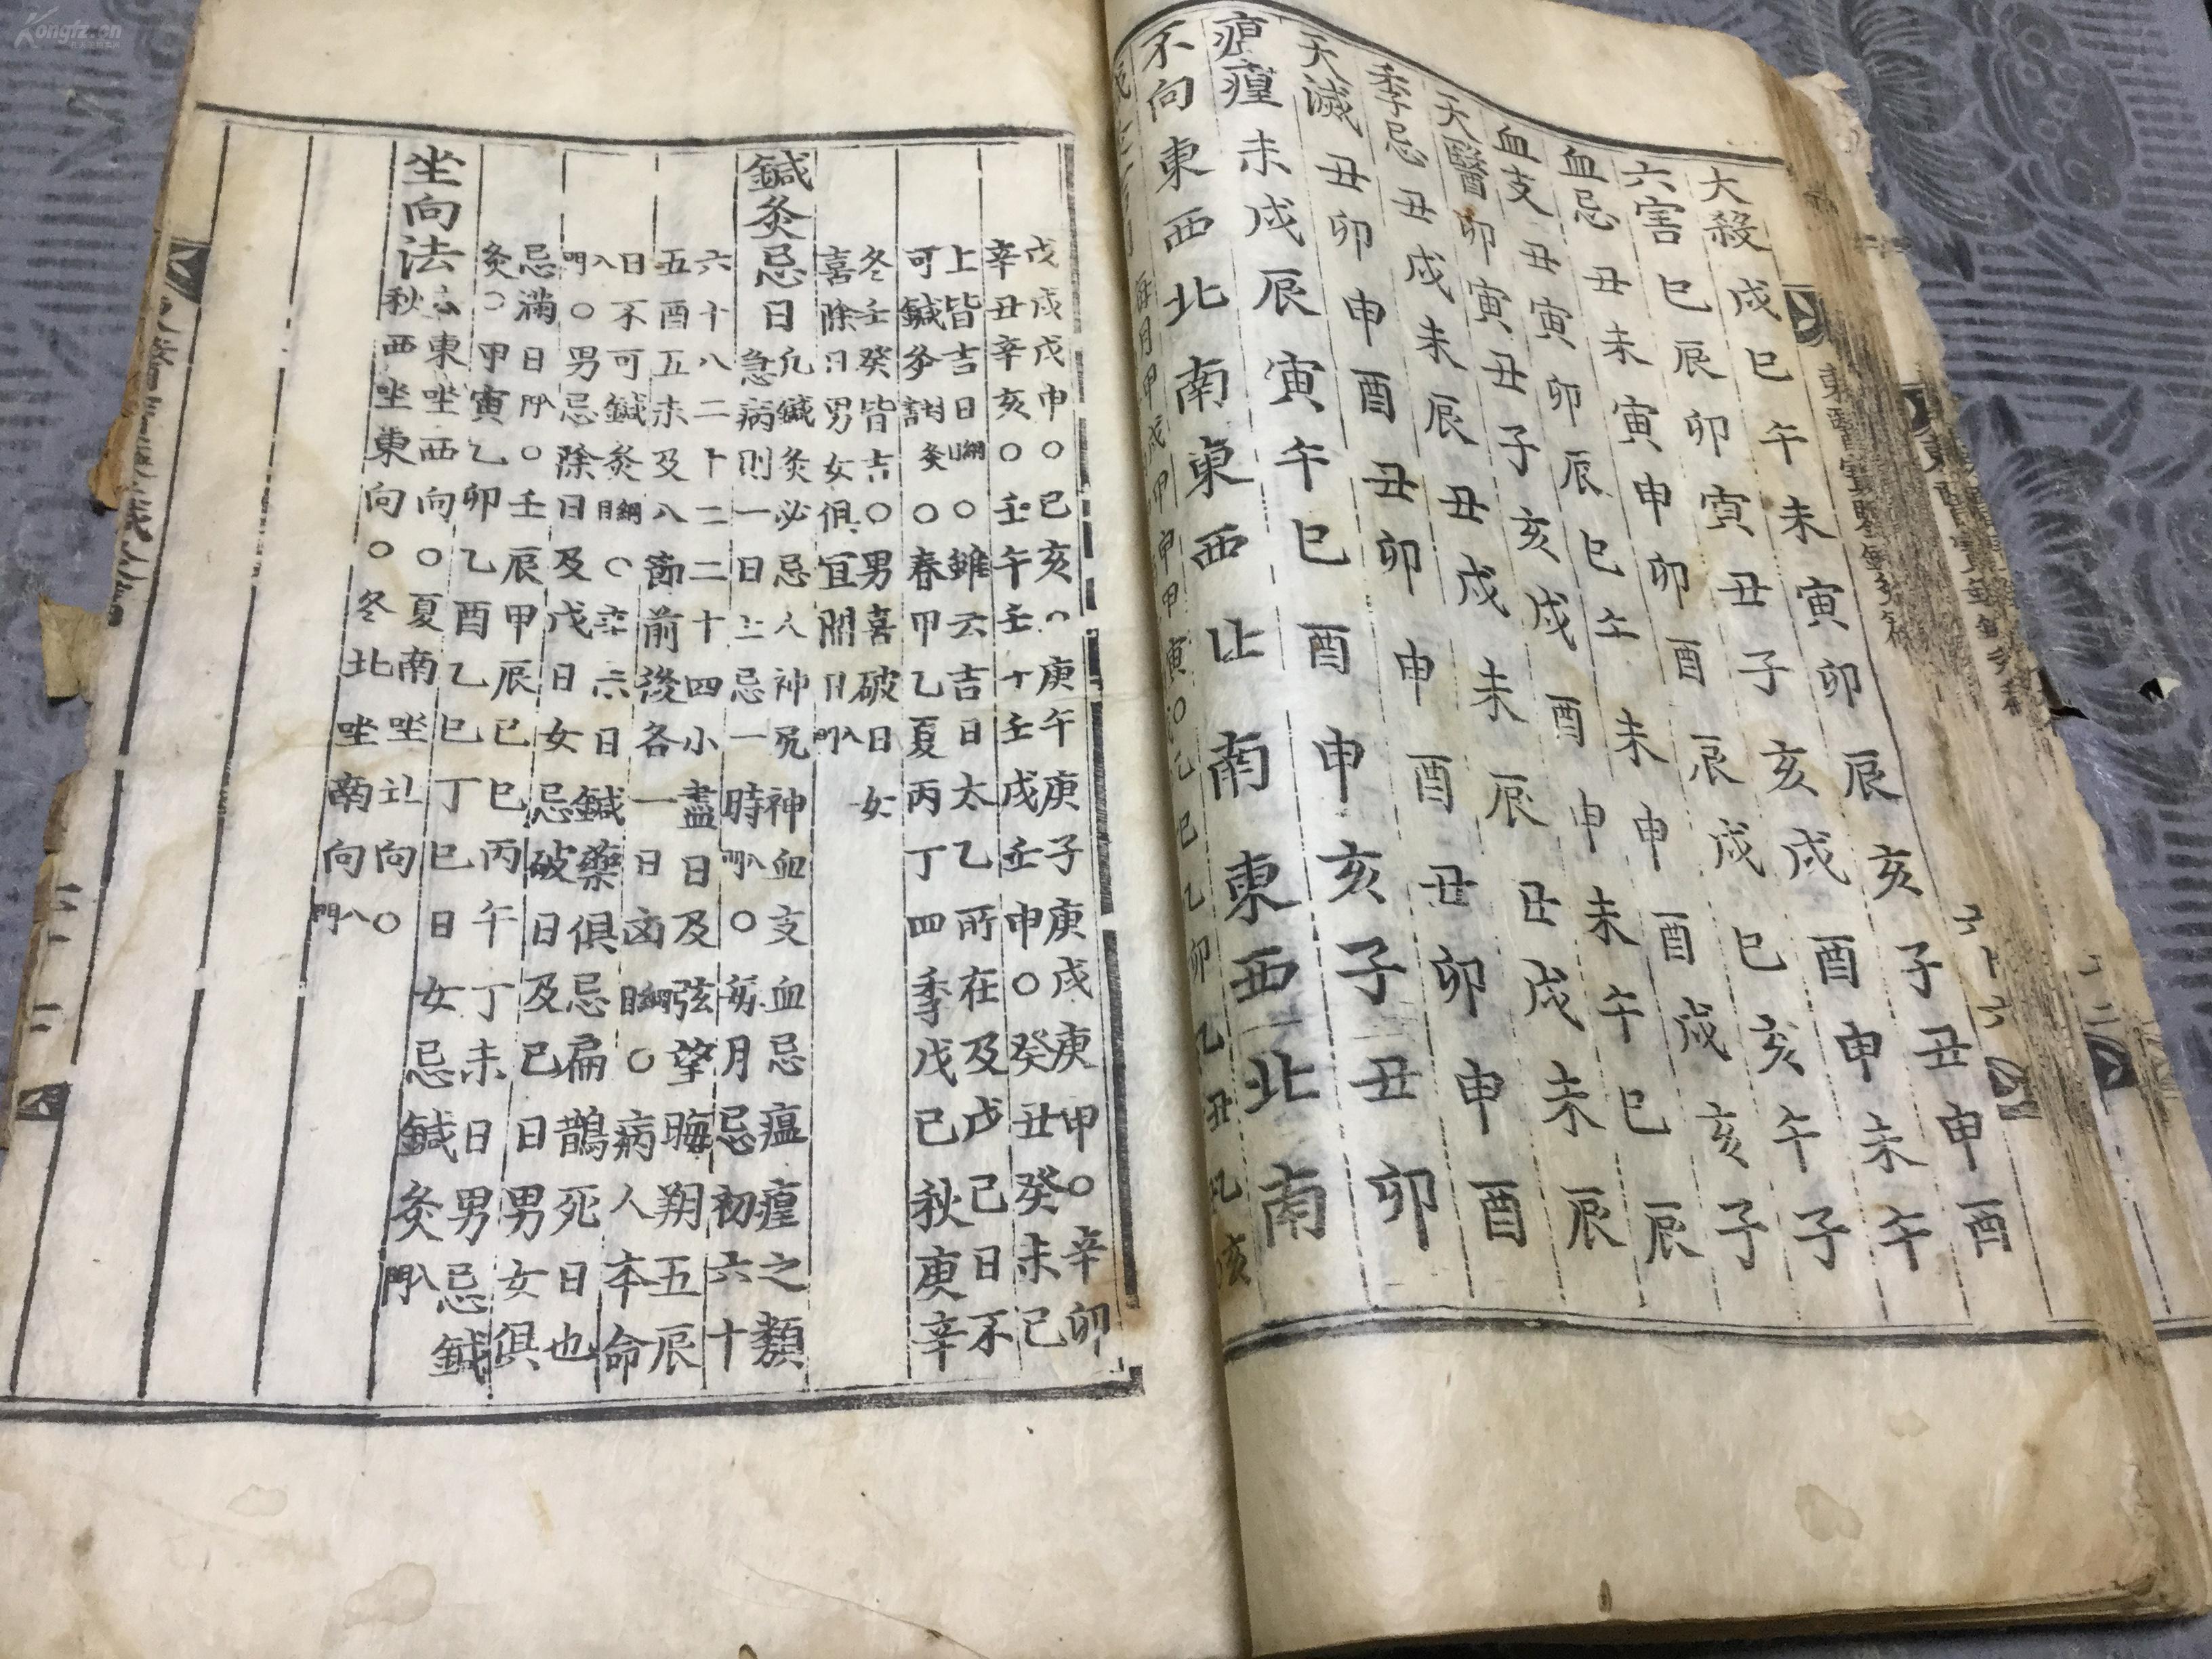 東醫寶鑑鍼灸篇
大殺戌巳午未寅卯辰亥子丑申酉
六害巳辰卯寅丑子亥戌酉申未午
血忌丑未寅申卯酉辰戌巳亥午子
血支丑寅卯辰巳午未申酉戌亥子
天醫卯寅丑子亥戌酉申未午巳辰
季忌丑戌未辰丑戌未辰丑戌未辰
天滅丑卯申酉丑卯申酉丑卯申酉
瘟㾮未戌辰寅午巳酉申亥子丑卯
不向東西北南東西北南東西北南
每月甲戌甲申甲寅○乙巳乙卯乙丑乙亥
戊戌戊申○己亥○庚午庚子庚戌庚申○辛卯
辛丑辛亥○壬午壬子壬戌壬申○癸丑癸未已
上皆吉日綱目○雖云吉日太乙所在及戊己日不
可鍼灸資生○春甲乙夏丙丁四季戊己秋庚辛
冬壬癸皆吉○男喜破日女
喜除日男女俱宜開日入門
鍼灸忌日
凡鍼灸必忌人神尻神血支血忌瘟㾮之類
急病則一日上忌一時入門○每月忌初六十
六十八二十二二十四小盡日及弦望晦朔五辰
五酉五未及八節前後各一日凶綱目○病人本命
日不可鍼灸綱目○辛未日鍼藥俱忌扁鵲死日也
入門○男忌除日及戊日女忌破日及己日男女俱
忌滿日入門○壬辰甲辰己巳丙午丁未日男忌鍼
灸○甲寅乙卯乙酉乙巳丁巳日女忌鍼灸入門
坐向法
春東坐西向○夏南坐北向○
秋西坐東向○冬北坐南向入門